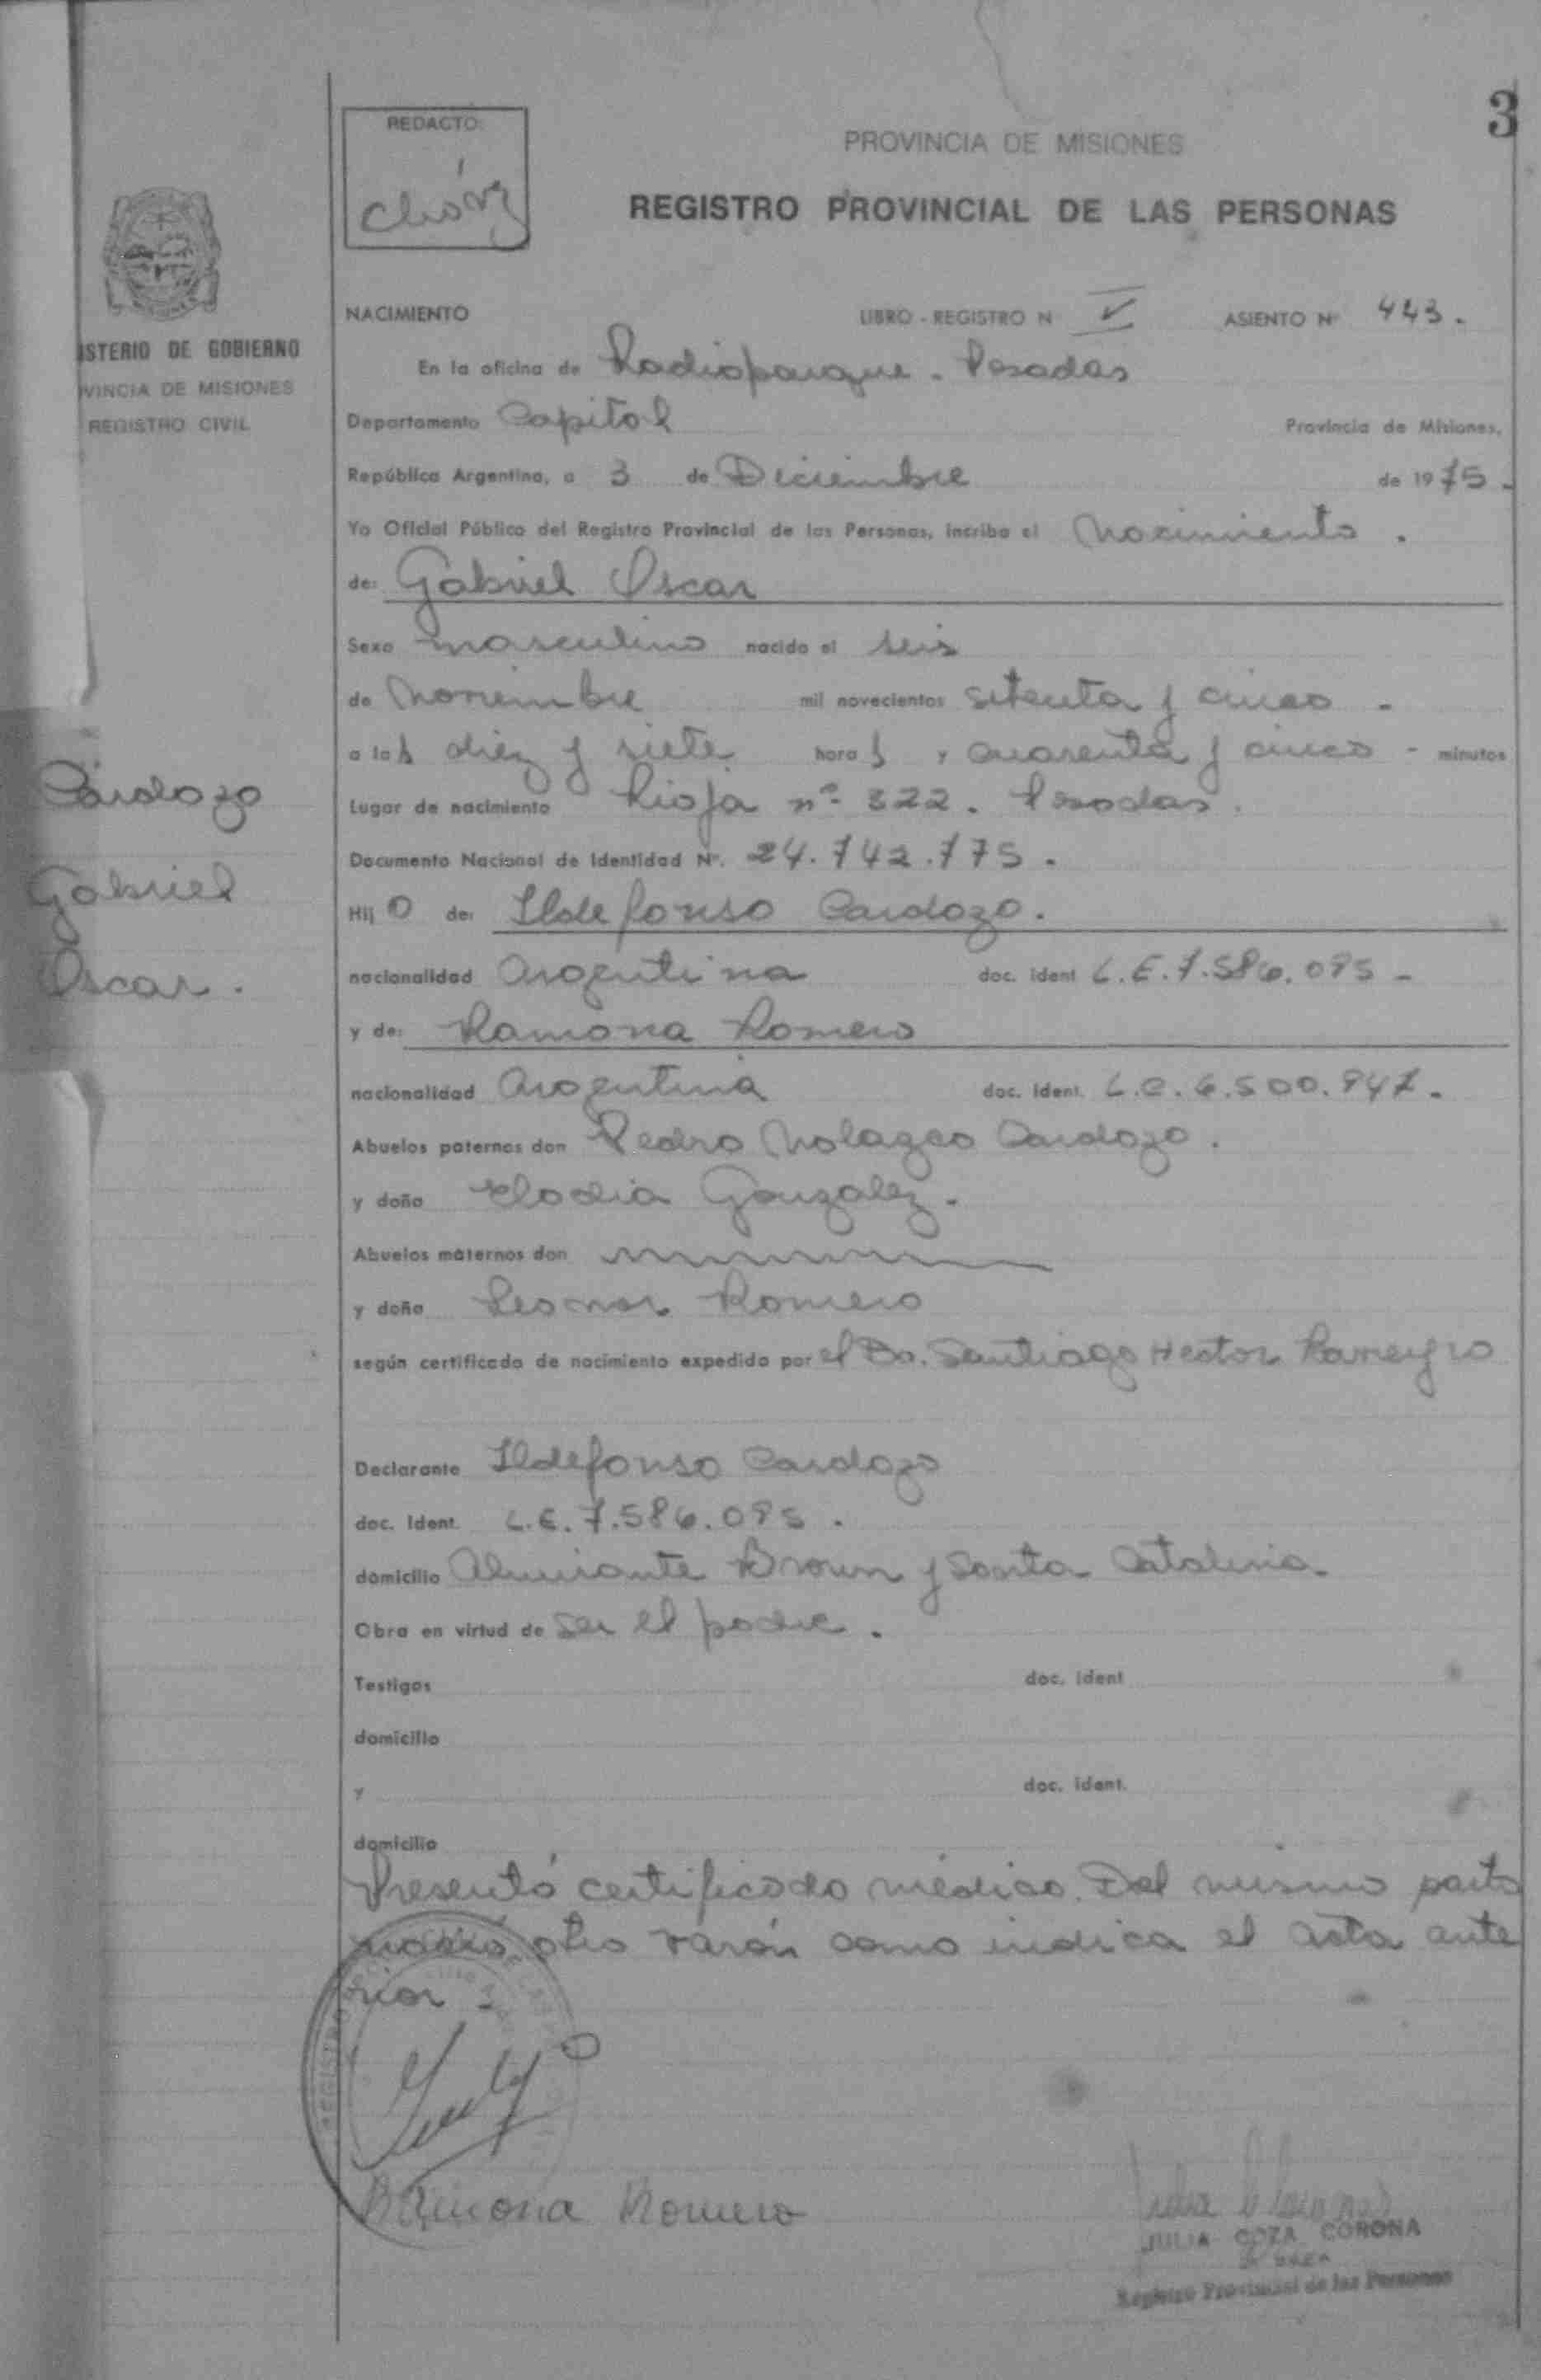 3
REDACTO:
Chávez
PROVINCIA DE MISIONES
REGISTRO PROVINCIAL DE LAS PERSONAS
ISTERIO DE GOBIERNO
VINCIA DE MISIONES
REGISTRO CIVIL
NACIMIENTO LIBRO - REGISTRO N V ASIENTO Nº 443.
En la oficina de Radioparque - Posadas
Departamento Capital Provincia de Misiones,
República Argentina, a 3 de Diciembre de 1975.
Yo Oficial Público del Registro Provincial de las Personas, incribo el Nacimiento.
de: Gabriel Oscar
Sexo masculino nacido el seis
de Noviembre mil novecientos setenta y cinco -
a las diez y siete horas y cuarenta y cinco - minutos
Lugar de nacimiento Rioja nº 322. Posadas.
Documento Nacional de Identidad Nº. 24.742.775.
Cardozo
Gabriel
Oscar.
Hijo de: Ildefonso Cardozo.
nacionalidad Argentina doc. ident L.E. 7.586.095 -
y de: Ramona Romero
nacionalidad Argentina doc. ident. L.C. 6.500.947.
Abuelos paternos don Pedro Nolazco Cardozo.
y doña Elodia Gonzalez.
Abuelos maternos don
y doña Leonor Romero
según certificado de nacimiento expedido por el Dr. Santiago Hector Rameyro
Declarante Ildefonso Cardozo
doc. Ident. L.E. 7.586.095.
domicilio Almirante Brown y Santa Catalina.
Obra en virtud de ser el padre.
Testigos doc. ident
domicilio
y doc. ident.
domicilio
Presentó certificado médico. Del mismo parto
nació otro varón como indica el acta ante
rior -
Ramona Romero
JULIA COZA CORONA
Registro Provincial de las Personas